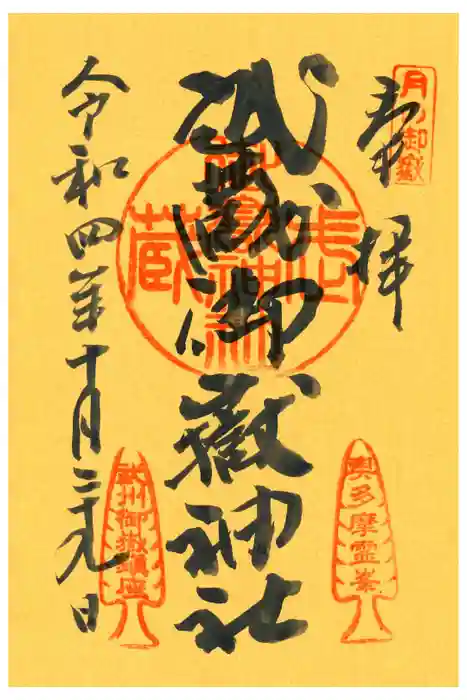 月の御嶽
奉拝
奥多摩霊峯
武蔵御嶽神社
令和四年十月二十九日
武州御嶽鎮座